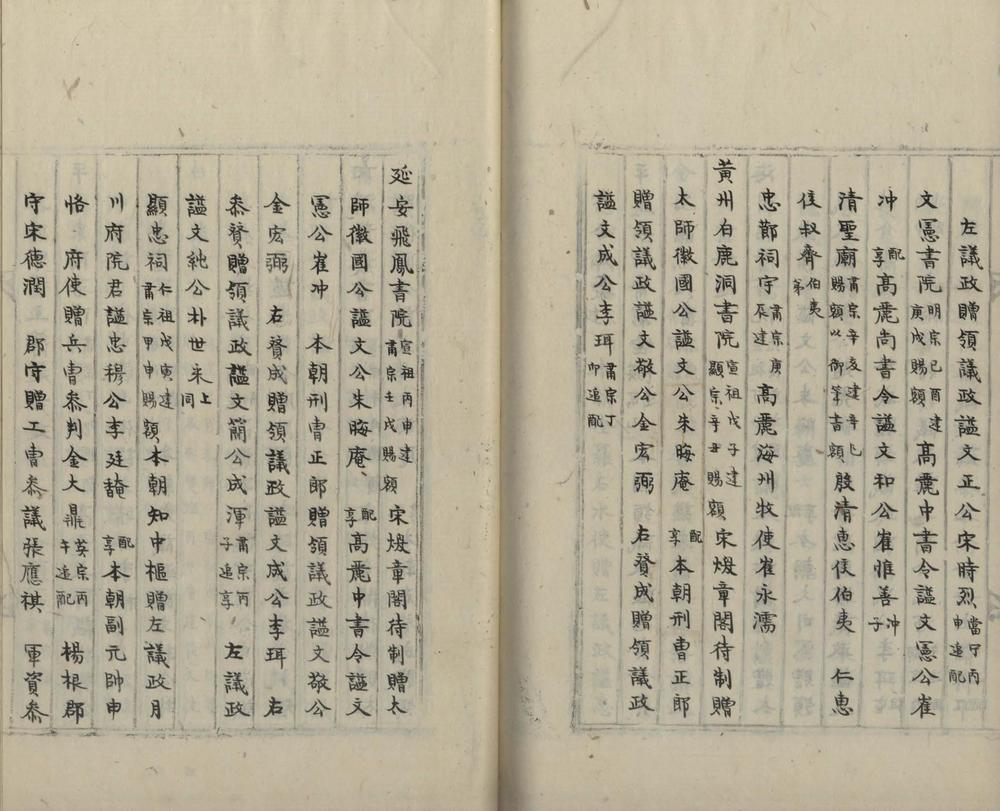 左議政贈領議政謚文正公宋時烈當宁丙申追配
文憲書院明宗己酉建庚戌賜額高麗中書令謚文憲公崔
冲配享高麗尚書令謚文和公崔惟善冲子
清聖廟肅宗辛亥建辛巳賜額以御筆書額殷清惠侯伯夷 仁惠
侯叔齊伯夷弟
忠節祠宇肅宗庚辰建高麗海州牧使崔永濡
黃州白鹿洞書院宣祖戊子建顯宗辛丑賜額宋煥章閣待制贈
太師徽國公謚文公朱晦庵配享本朝刑曹正郎
贈領議政謚文敬公金宏弼 右贊成贈領議政
謚文成公李珥肅宗丁卯追配
延安飛鳳書院宣祖丙申建肅宗壬戌賜額宋煥章閣待制贈太
師徽國公謚文公朱晦庵配享高麗中書令謚文
憲公崔冲 本朝刑曹正郎贈領議政謚文敬公
金宏弼 右贊成贈領議政謚文成公李珥 右
叅贊贈領議政謚文簡公成渾肅宗丙子追享 左議政
謚文純公朴世采上同
顯忠祠仁祖戊寅建肅宗甲申賜額本朝知中樞贈左議政月
川府院君謚忠穆公李廷馣配享本朝副元帥申
恪 府使贈兵曹叅判金大鼎英宗丙午追配 楊根郡
守宋德潤 郡守贈工曹叅議張應祺 軍資叅